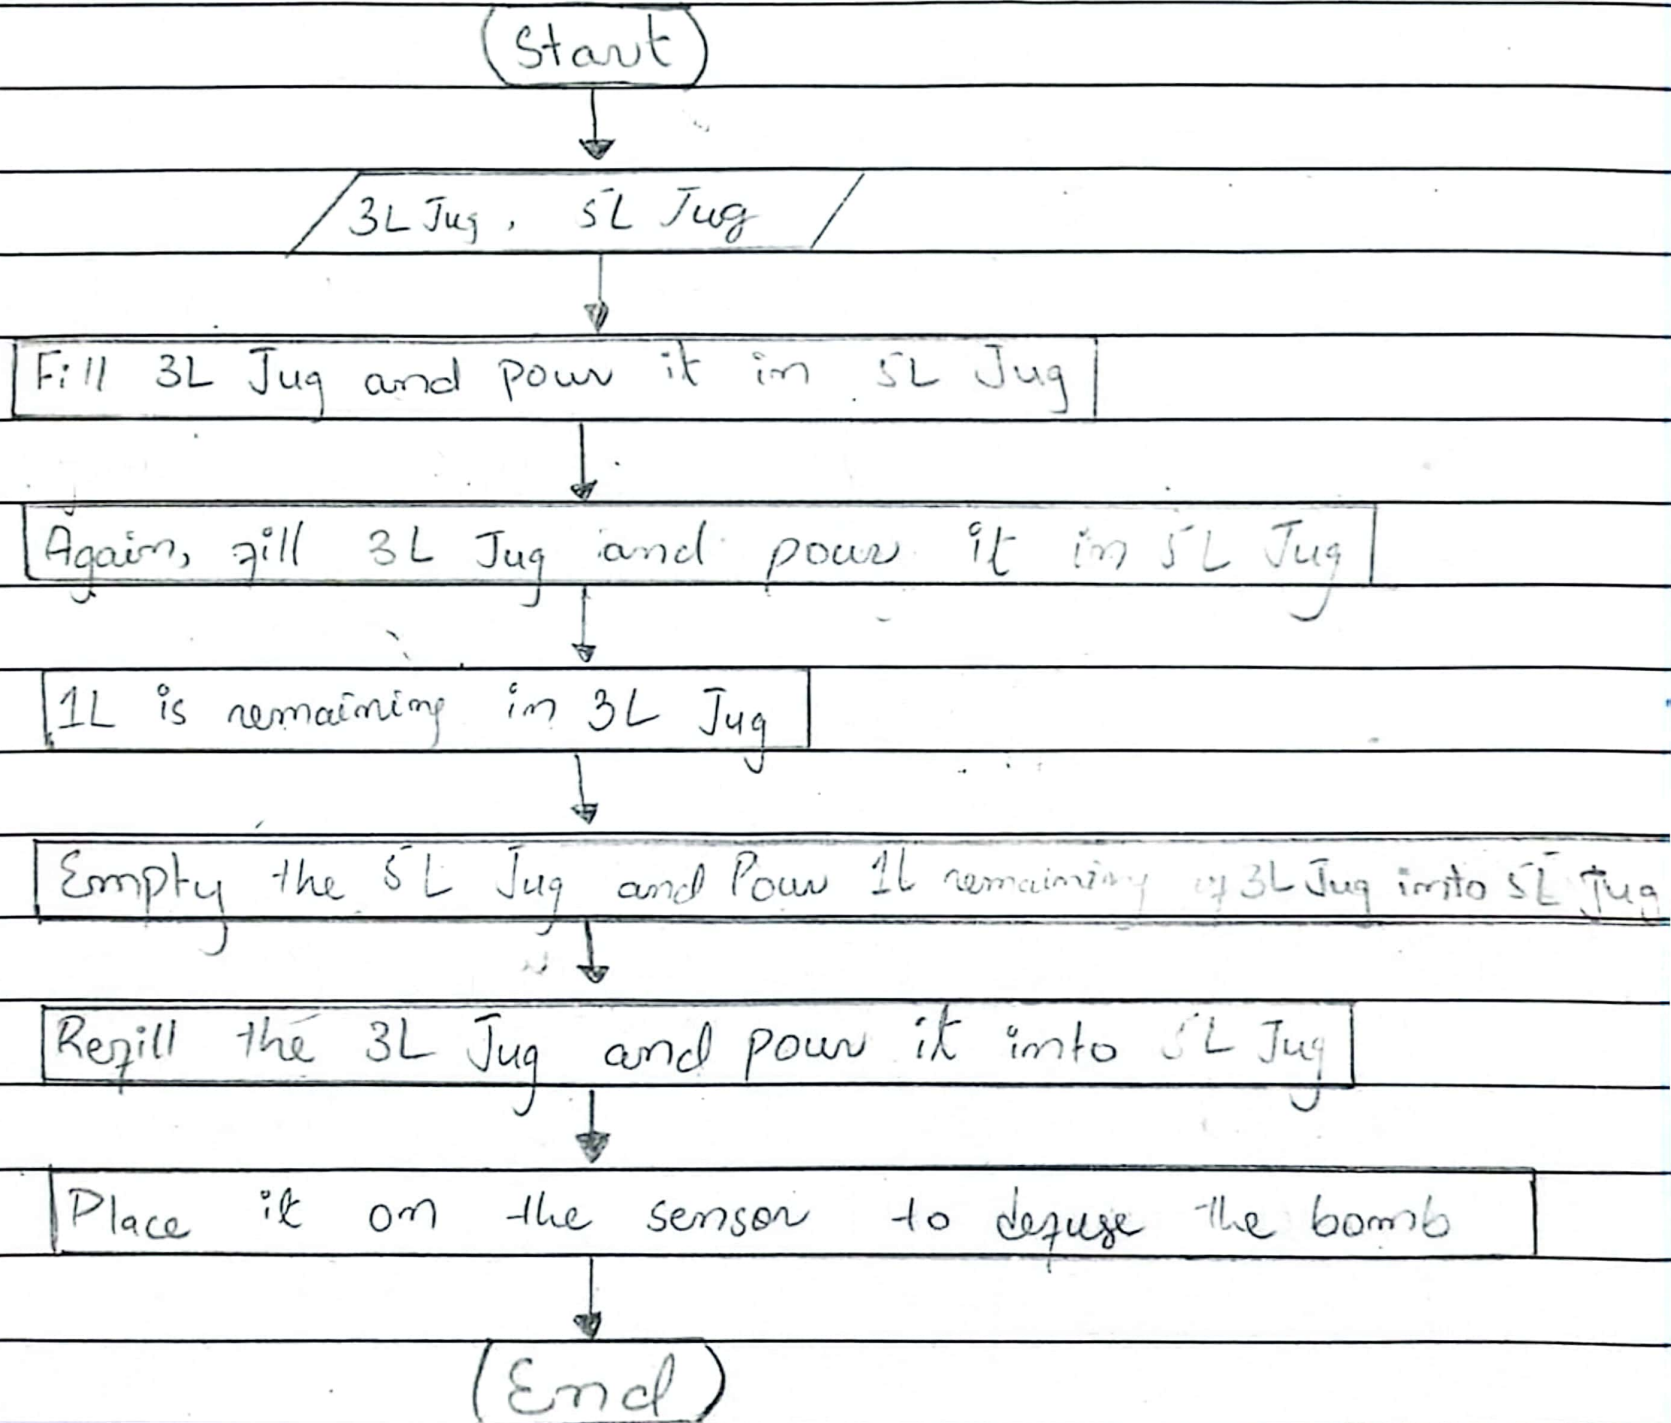 Start
3L Jug, 5L Jug
Fill 3L Jug and pour it in 5L Jug
Again, fill 3L Jug and pour it in 5L Jug
1L is remaining in 3L Jug
Empty the 5L Jug and Pour 1L remaining of 3L Jug into 5L Jug
Refill the 3L Jug and pour it into 5L Jug
Place it on the sensor to defuse the bomb
End